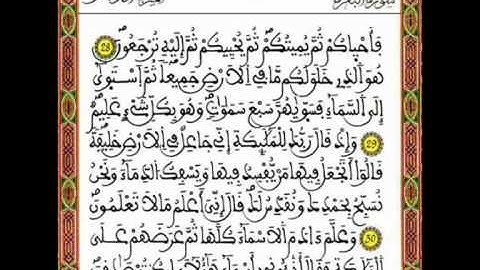 سُورَةُ الْبَقَرَة
فَأَحْيَاكُمْ ثُمَّ يُمِيتُكُمْ ثُمَّ يُحْيِيكُمْ ثُمَّ إِلَيْهِ تُرْجَعُونَ 28
هُوَ الذِے خَلَقَ لَكُم مَّا فِے الَارْضِ جَمِيعاً ثُمَّ اَسْتَوَىٰ
إِلَى السَّمَآءِ فَسَوّٰيهُنَّ سَبْعَ سَمَٰوَٰتٍ وَهُوَ بِكُلِّ شَےْءٍ عَلِيمٌ
29 وَإِذْ قَالَ رَبُّكَ لِلْمَلَٰٓئِكَةِ إِنِّے جَاعِلٌ فِے الَارْضِ خَلِيفَةً
قَالُوٓاْ أَتَجْعَلُ فِيهَا مَنْ يُّفْسِدُ فِيهَا وَيَسْفِكُ الدِّمَآءَ وَنَحْنُ
نُسَبِّحُ بِحَمْدِكَ وَنُقَدِّسُ لَكَ قَالَ إِنِّيَ أَعْلَمُ مَا لَا تَعْلَمُونَ
30 وَعَلَّمَ ءَادَمَ الَاسْمَآءَ كُلَّهَا ثُمَّ عَرَضَهُمْ عَلَى